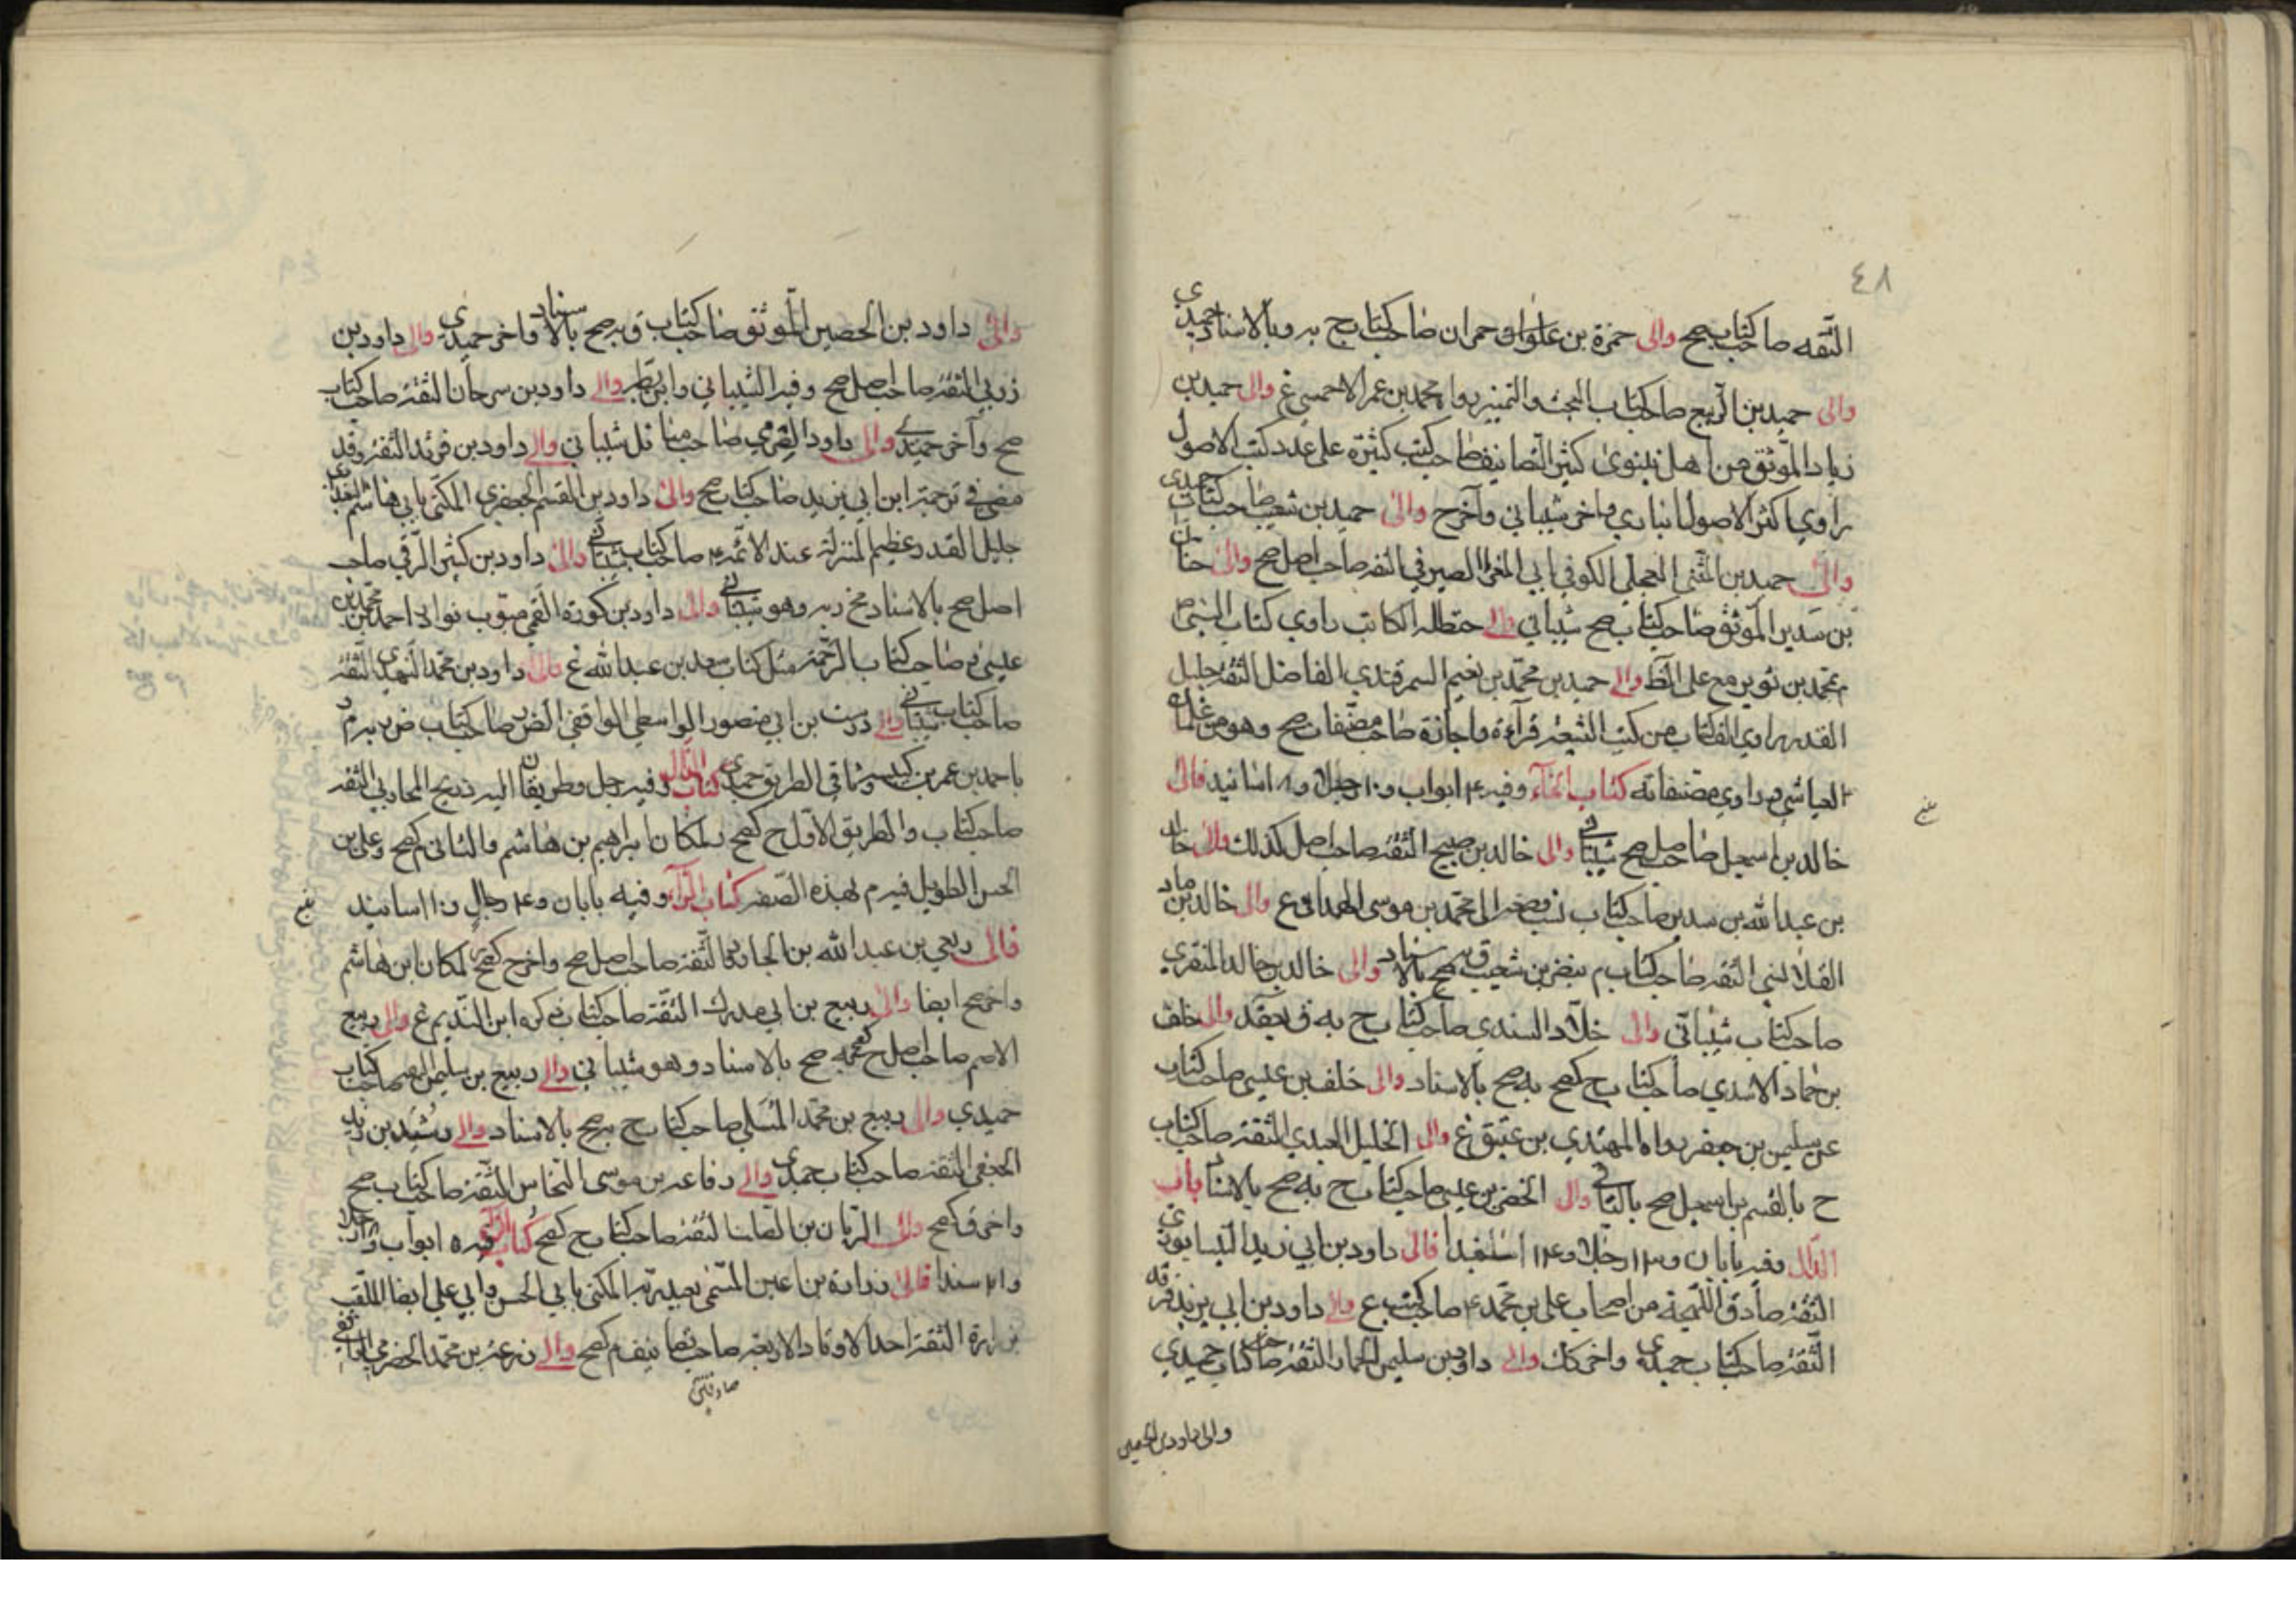 ٤٨
الثقه صاحب كتاب صح والى حمزة بن حمران صاحب كتاب ح به وبالاسناد حميدي
والى حميد بن الربيع صاحب كتاب البحث والتمييز رواه محمد بن عمر الاحمسي غ والى حميد بن
زياد الموثق من اهل نينوى كثير التصانيف صاحب كتب كثيرة على عدد كتب الاصول
راوي اكثر الاصول انباري واخر شيباني وآخر ح والى حميد بن شعيب صاحب كتاب حميدي
والى حميد بن المثنى العجلي الكوفي ابي المغرا الصيرفي الثقه صاحب اصل صح والى حنان
بن سدير الموثق صاحب كتاب صح شيباني والى حنظلة الكاتب راوي كتاب النبي ص
القدر راوي الف كتاب من كتب الشيعة قراءة واجازة صاحب مصنفات صح وهو من غلمان
العياشي راوي مصنفاته كتاب الخآء وفيه ٤ ابواب و١٠ رجال و٨ اسانيد فالى
خالد بن اسمعيل صاحب اصل صح شيباني والى خالد بن صبيح الثقة صاحب اصل كذلك والى خالد
بن عبدالله بن سدير صاحب كتاب نسب وضعه الى محمد بن موسى الهمداني غ والى خالد بن ماد
القلانسي الثقه صاحب كتاب م بنضر بن شعيب صح بالاسناد والى خالد بن خالد المنقري
صاحب كتاب شيباني والى خلاد السندي صاحب كتاب ح به ق بعقد والى خلف
بن حماد الاسدي صاحب كتاب ح كصح به صح بالاسناد والى خلف بن عيسى صاحب كتاب
عن سليمن بن جعفر رواه المهتدي بن عتيق غ والى الخليل العبدي الثقة صاحب كتاب
ح بالقسم بن اسمعيل صح بالثاني والى الخضر بن عيسى صاحب كتاب ح به صح بالاسناد باب
الدال وفيه بابان و١٣ رجلا و١٤ سندا فالى داود بن ابي زيد النيسابوري
الثقة صادق اللهجة من اصحاب علي بن محمد ع صاحب كتب ع والى داود بن ابي يزيد فرقد
الثقة صاحب كتاب حميدي واخر كك والى داود بن سليمن الحمار الثقة صاحب كتاب حميدي
والى داود بن الحصين
والى داود بن الحصين الموثق صاحب كتاب ق به صح بالاسناد واخر حميدي والى داود بن
زربي الثقة صاحب اصل صح وفيه الشيباني وابن بطه والى داود بن سرحان الثقة صاحب كتاب
صح وآخر حميدي والى داود الصرمي صاحب مسائل شيباني والى داود بن فرقد الثقة وقد
مضى في ترجمة ابن ابي يزيد صاحب كتاب صح والى داود بن القسم الجعفري المكنى بابي هاشم البغدادي
جليل القدر وعظيم المنزلة عند الائمة ع صاحب كتاب شيباني والى داود بن كثير الرقي صاحب
اصل صح بالاسناد صح به وهو شيباني والى داود بن كورة القمي مبوب نوادر احمد بن محمد بن
عيسى صاحب كتاب الرحمة مثل كتاب سعد بن عبدالله غ والى داود بن محمد النهدي الثقة
صاحب كتاب شيباني والى درست بن ابي منصور الواسطي الواقفي صاحب كتاب ض
باحمد بن عمر بن كيسبة وثاني الطريق حميدي كتاب الذال وفيه رجل وطريقان اليه ذريح المحاربي الثقه
صاحب كتاب والطريق الاول ح كصح لمكان ابراهيم بن هاشم والثاني م كصح وعلي بن
الحسن الطويل فيه م بهذه الصفة كتاب الرآء وفيه بابان و٤ رجال و١٠ اسانيد
فالى ربعي بن عبدالله بن الجارود الثقة صاحب اصل صح واخر ح كصح لمكان ابن هاشم
واخر صح ايضا والى ربيع بن ابي مدرك الثقة صاحب كتاب ذكره ابن النديم غ والى ربيع
الاصم صاحب اصل ح كصح به صح بالاسناد وهو شيباني والى ربيع بن سليمن صاحب كتاب
حميدي والى ربيع بن محمد المسلي صاحب كتاب ح به صح بالاسناد والى رشيد بن زيد
الجعفي الثقة صاحب كتاب حميدي والى رفاعه بن موسى النخاس الثقة صاحب كتاب صح
واخر ق كصح والى الريان بن الصلت الثقة صاحب كتاب ح كصح كتاب الزآء وفيه ٥ ابواب
سندا فالى زرارة بن اعين المسمى بعبد ربه المكنى بابي الحسن وابي علي ايضا الملقب
بزرارة الثقة احد الاوتاد الاربعة صاحب تصانيف م كصح والى زرعة بن محمد الحضرمي الواقفي